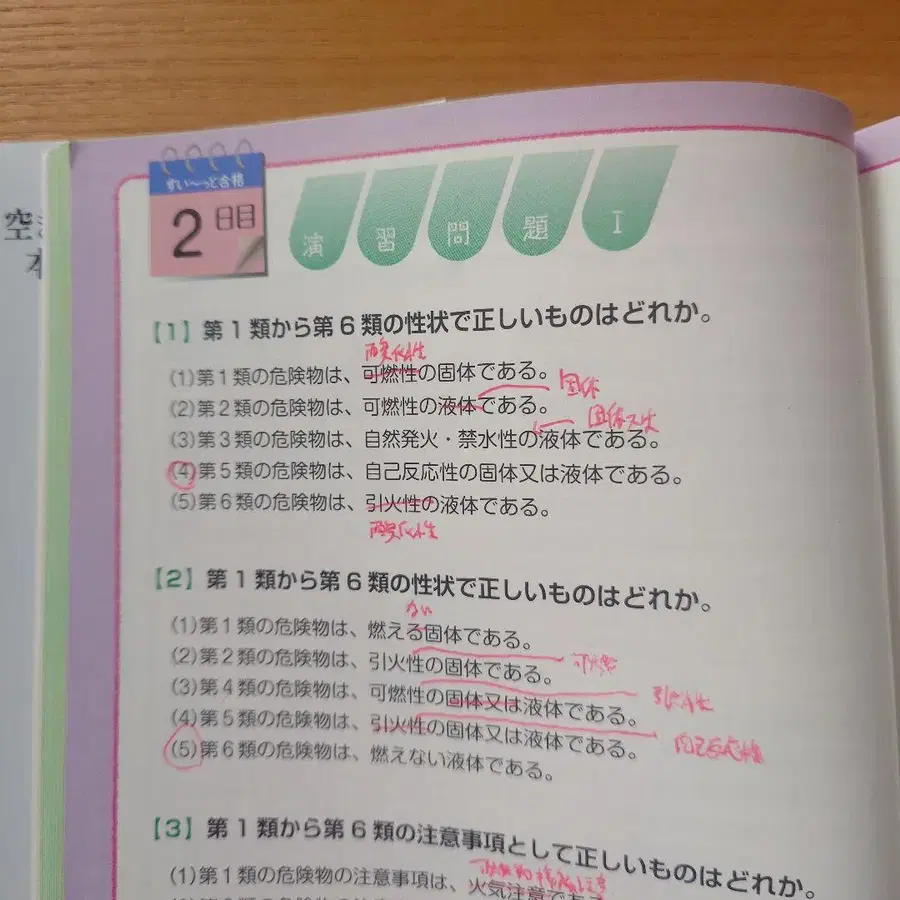 空
すい〜っと合格
2日目
演習問題 I
【1】第1類から第6類の性状で正しいものはどれか。
酸化性
(1)第1類の危険物は、可燃性の固体である。
固体
(2)第2類の危険物は、可燃性の液体である。
固体又は
(3)第3類の危険物は、自然発火・禁水性の液体である。
(4)第5類の危険物は、自己反応性の固体又は液体である。
(5)第6類の危険物は、引火性の液体である。
酸化性
【2】第1類から第6類の性状で正しいものはどれか。
ない
(1)第1類の危険物は、燃える固体である。
(2)第2類の危険物は、引火性の固体である。
可燃
(3)第4類の危険物は、可燃性の固体又は液体である。
引火性
(4)第5類の危険物は、引火性の固体又は液体である。
自己反応性
(5)第6類の危険物は、燃えない液体である。
【3】第1類から第6類の注意事項として正しいものはどれか。
(1)第1類の危険物の注意事項は、火気注意であ